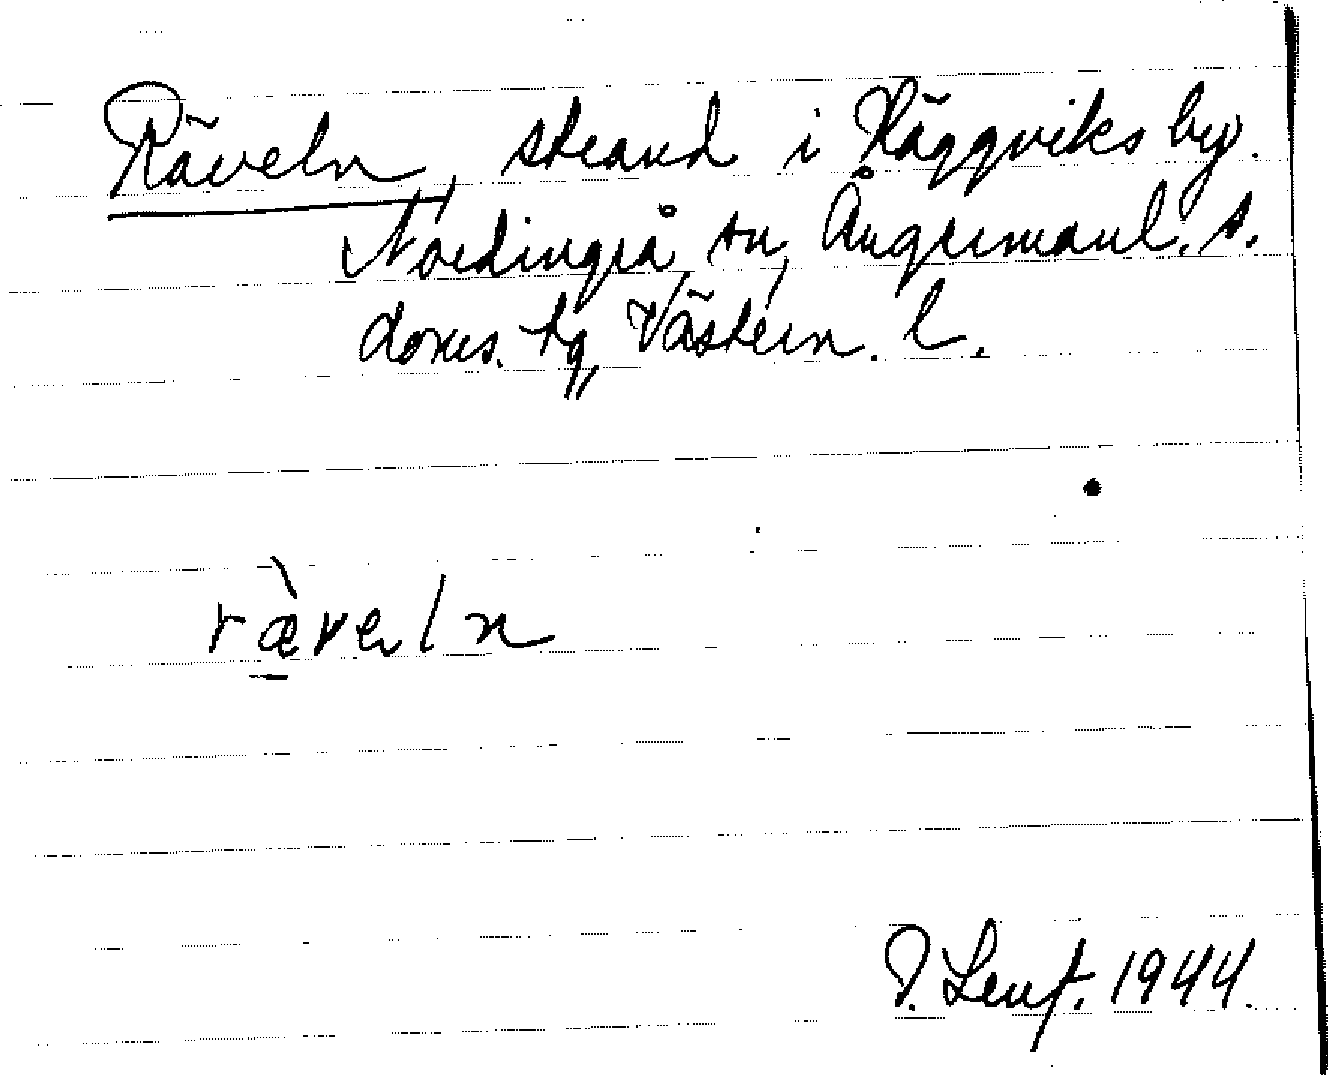 Räveln, strand i Häggviks by.
Nordingrå sn, Ångermanl. s.
doms. tg, Västern. l.
ræ̀veln
1944.